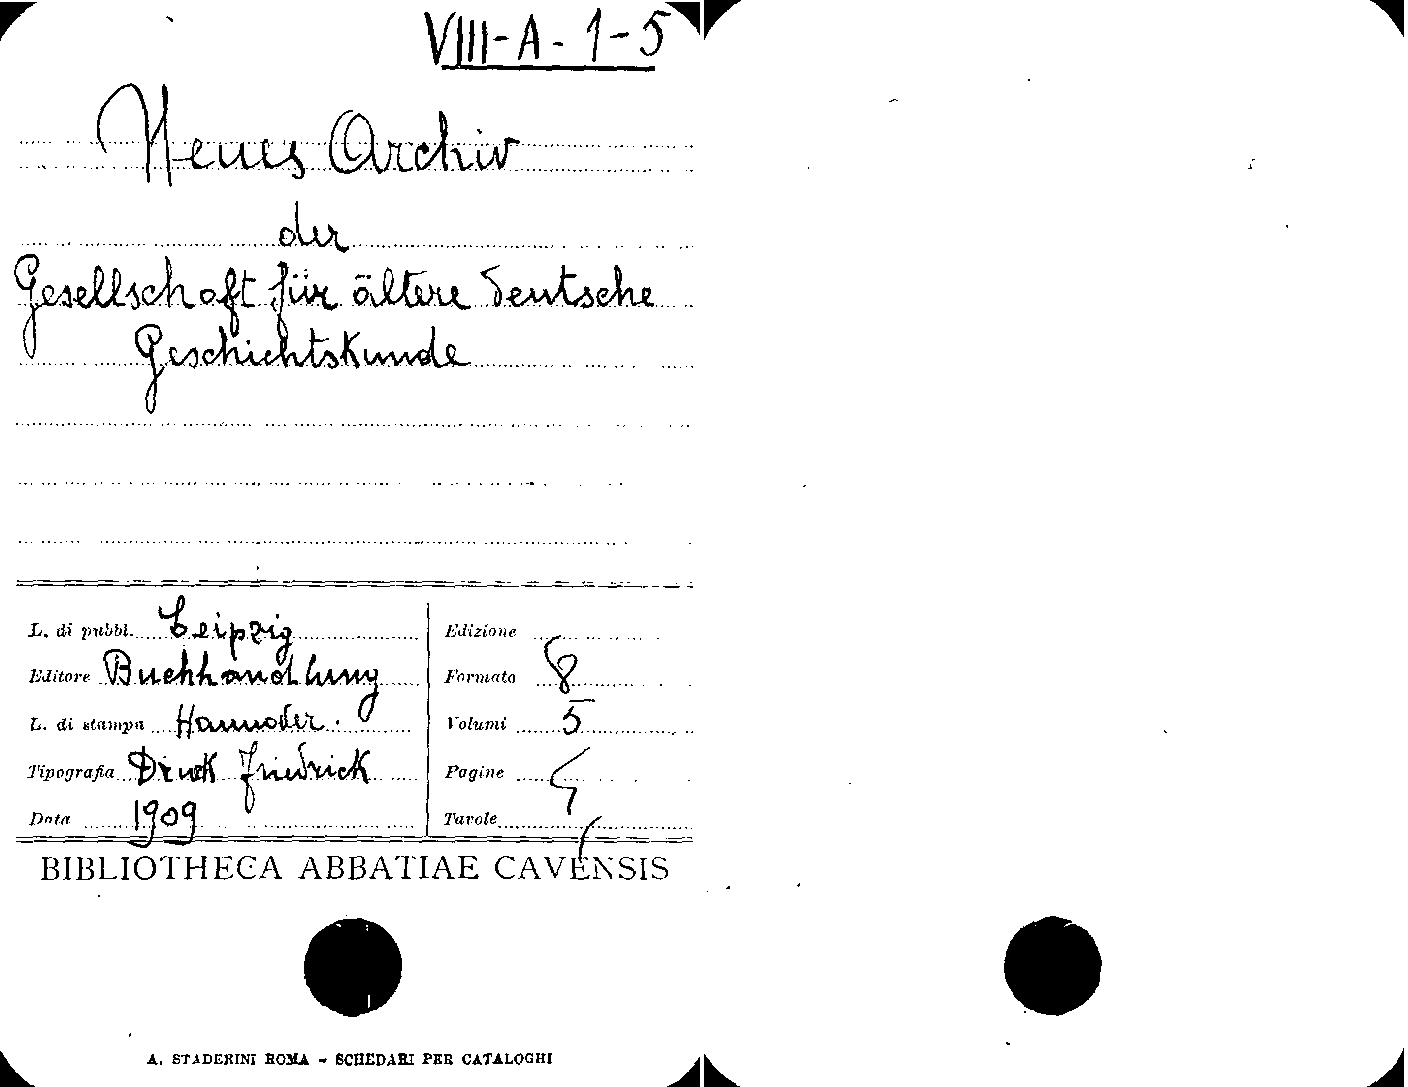 VIII-A-1-5
Neues Archiv
der
Gesellschaft für ältere deutsche
Geschichtskunde
L. di pubbl. Leipzig
Editore Buchhandlung
L. di stampa Hannover.
Tipografia Druck Friedrick
Data 1909
Edizione
Formato 8
Volumi 5
Pagine
Tavole
BIBLIOTHECA ABBATIAE CAVENSIS
A. STADERINI ROMA - SCHEDARI PER CATALOGHI